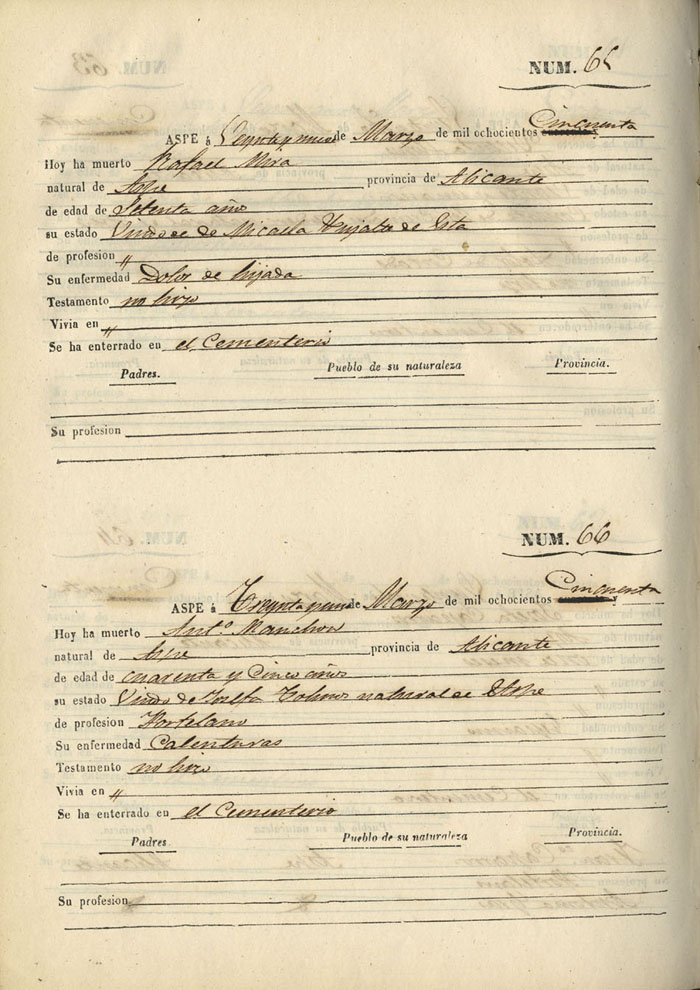 NUM. 65
Cincuenta
ASPE á Veynte y nueve de Marzo de mil ochocientos cuarenta
Hoy ha muerto Rafael Mira
natural de Aspe provincia de Alicante
de edad de Setenta año
su estado Viudo de Micaela de Esta
de profesion "
Su enfermedad Dolor de hijada
Testamento no hizo
Vivia en "
Se ha enterrado en el Cementerio
Padres. Pueblo de su naturaleza Provincia.
Su profesion
NUM. 66
Cincuenta
ASPE á Treynta y uno de Marzo de mil ochocientos cuarenta
Hoy ha muerto Antº Manchon
natural de Aspe provincia de Alicante
de edad de cuarenta y Cinco años
su estado Viudo de natural de Aspe
de profesion Hortelano
Su enfermedad Calenturas
Testamento no hizo
Vivia en "
Se ha enterrado en el Cementerio
Padres Pueblo de su naturaleza Provincia.
Su profesion